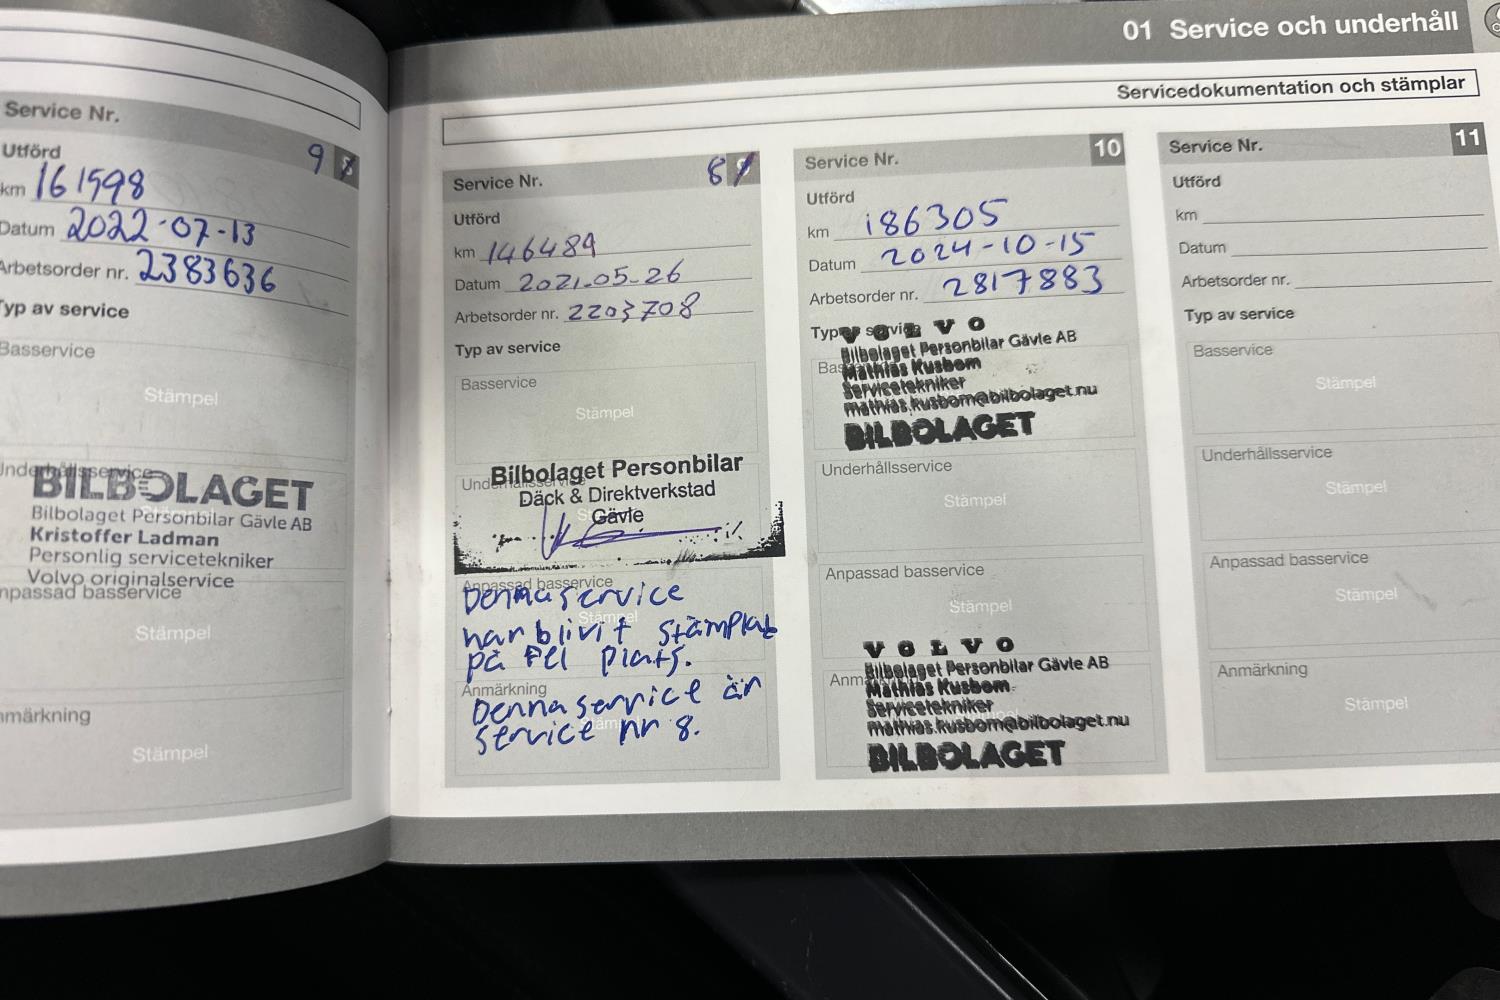 01 Service och underhåll
Servicedokumentation och stämplar
Service Nr.
9 8
Utförd
km 161598
Datum 2022-07-13
Arbetsorder nr. 2383636
Typ av service
Basservice
Stämpel
Underhållsservice
BILBOLAGET
Bilbolaget Personbilar Gävle AB
Kristoffer Ladman
Personlig servicetekniker
Volvo originalservice
Anpassad basservice
Stämpel
Anmärkning
Stämpel
Service Nr. 8 9
Utförd
km 146489
Datum 2021-05-26
Arbetsorder nr. 2203708
Typ av service
Basservice
Stämpel
Underhållsservice
Bilbolaget Personbilar
Däck & Direktverkstad
Gävle
Anpassad basservice
Stämpel
Denna service
har blivit stämplat
på fel plats.
Anmärkning
Denna service är
Stämpel
service nr 8.
Service Nr. 10
Utförd
km 186305
Datum 2024-10-15
Arbetsorder nr. 2817883
Typ av service
VOLVO
Bilbolaget Personbilar Gävle AB
Mathias Kusbom
Servicetekniker
mathias.kusbom@bilbolaget.nu
BILBOLAGET
Underhållsservice
Stämpel
Anpassad basservice
Stämpel
VOLVO
Bilbolaget Personbilar Gävle AB
Mathias Kusbom
Servicetekniker
mathias.kusbom@bilbolaget.nu
BILBOLAGET
Service Nr. 11
Utförd
km
Datum
Arbetsorder nr.
Typ av service
Basservice
Stämpel
Underhållsservice
Stämpel
Anpassad basservice
Stämpel
Anmärkning
Stämpel